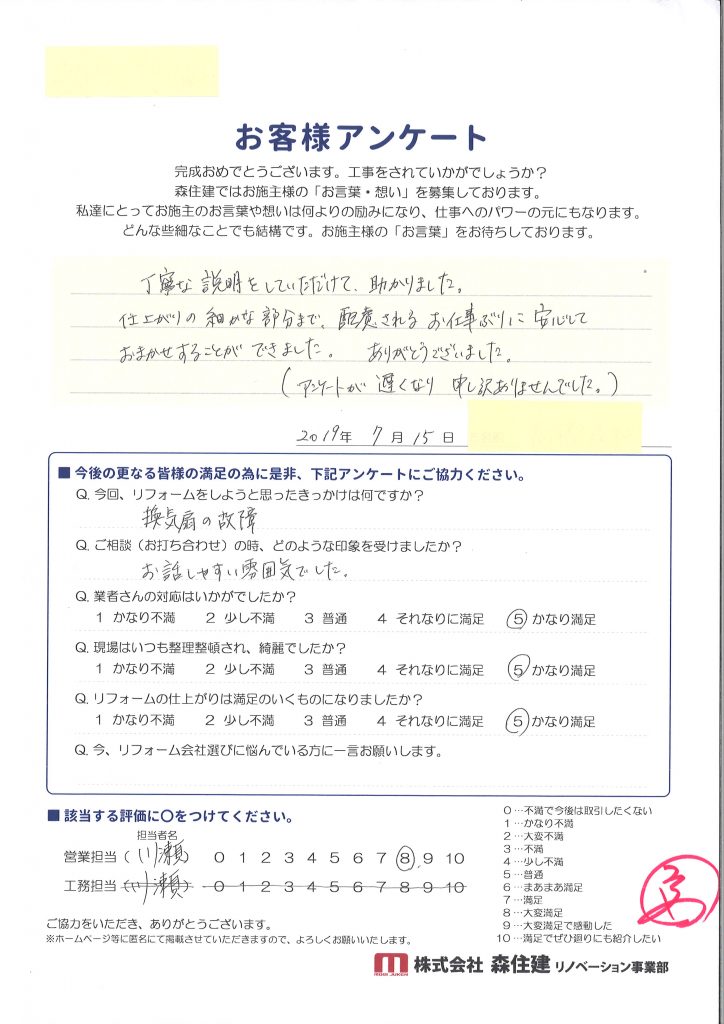 お客様アンケート
完成おめでとうございます。工事をされていかがでしょうか？
森住建ではお施主様の「お言葉・想い」を募集しております。
私達にとってお施主のお言葉や想いは何よりの励みになり、仕事へのパワーの元にもなります。
どんな些細なことでも結構です。お施主様の「お言葉」をお待ちしております。
丁寧な説明をしていただけて、助かりました。
仕上がりの細かな部分まで、配慮されるお仕事ぶりに安心して
おまかせすることができました。ありがとうございました。
(アンケートが遅くなり申し訳ありませんでした。)
2019年 7月15日
■今後の更なる皆様の満足の為に是非、下記アンケートにご協力ください。
Q. 今回、リフォームをしようと思ったきっかけは何ですか？
換気扇の故障
Q. ご相談（お打ち合わせ）の時、どのような印象を受けましたか？
お話しやすい雰囲気でした。
Q. 業者さんの対応はいかがでしたか？
1 かなり不満 2 少し不満 3 普通 4 それなりに満足 5 かなり満足
Q. 現場はいつも整理整頓され、綺麗でしたか？
1 かなり不満 2 少し不満 3 普通 4 それなりに満足 5 かなり満足
Q. リフォームの仕上がりは満足のいくものになりましたか？
1 かなり不満 2 少し不満 3 普通 4 それなりに満足 5 かなり満足
Q. 今、リフォーム会社選びに悩んでいる方に一言お願いします。
■該当する評価に〇をつけてください。
担当者名
営業担当（川瀬） 0 1 2 3 4 5 6 7 8 9 10
工務担当（川瀬） 0 1 2 3 4 5 6 7 8 9 10
0…不満で今後は取引したくない
1…かなり不満
2…大変不満
3…不満
4…少し不満
5…普通
6…まあまあ満足
7…満足
8…大変満足
9…大変満足で感動した
10…満足でぜひ廻りにも紹介したい
ご協力をいただき、ありがとうございます。
※ホームページ等に匿名にて掲載させていただきますので、よろしくお願いいたします。
MORI JUKEN 株式会社 森住建 リノベーション事業部